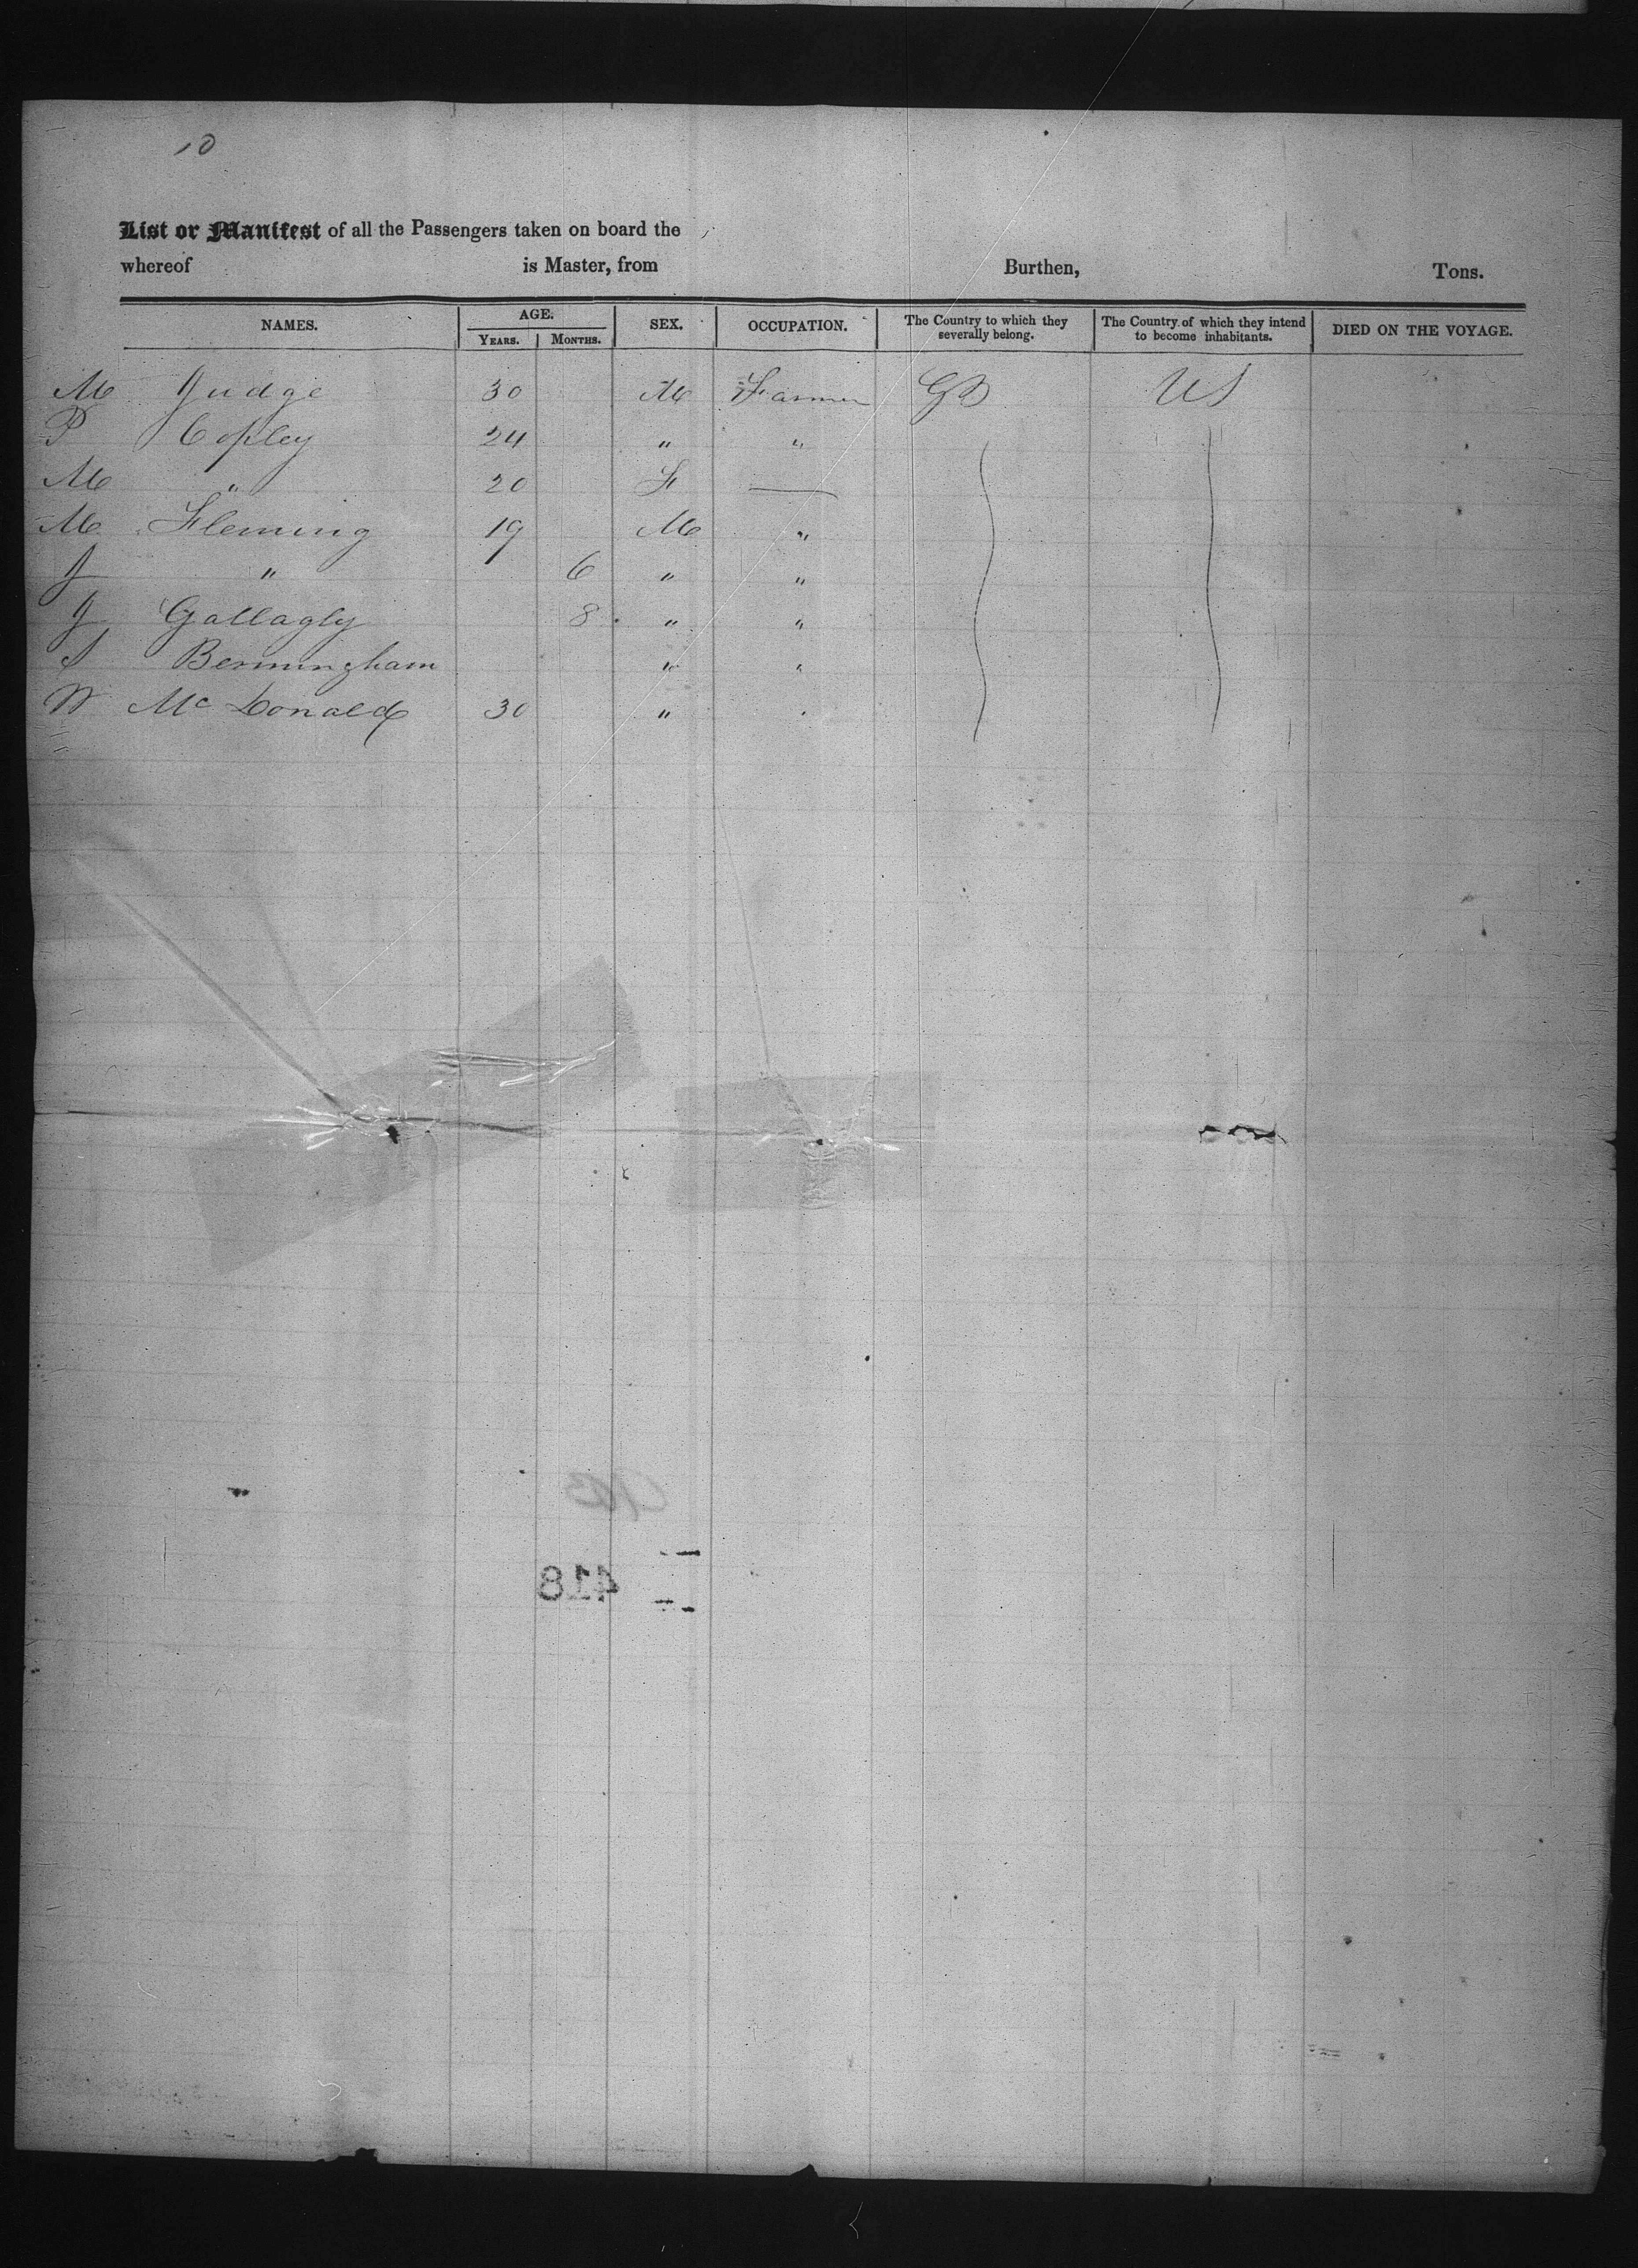 10
List or Manifest of all the Passengers taken on board the
whereof is Master, from Burthen, Tons.
NAMES. AGE. SEX. OCCUPATION. The Country to which they severally belong. The Country of which they intend to become inhabitants. DIED ON THE VOYAGE.
YEARS. MONTHS.
M Judge 30 M Farmer GB US
P Copley 24 " "
M " 20 F —
M Fleming 19 M "
J " 6 " "
J Gallagly 8 " "
S Bermingham " "
W Mc Donald 30 "
418